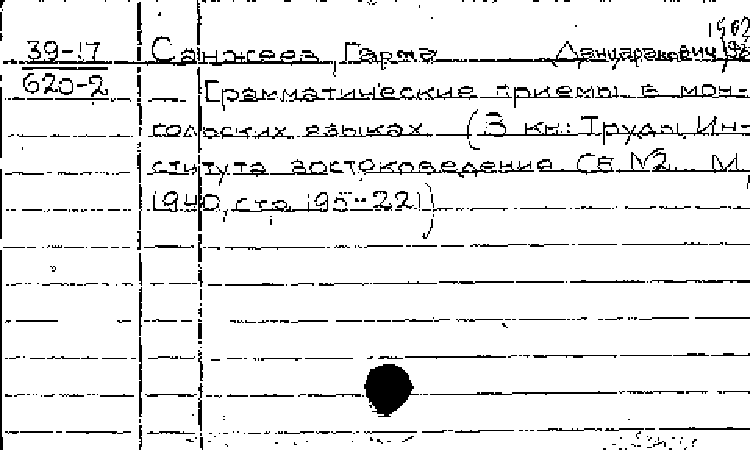 39-17
620-2
Санжеев, Гарма Данцаранович
Грамматические приемы в мон-
гольских языках. (В кн: Труды Ин-
ститута востоковедения Сб. №2. М.,
1940, стр. 195-221)